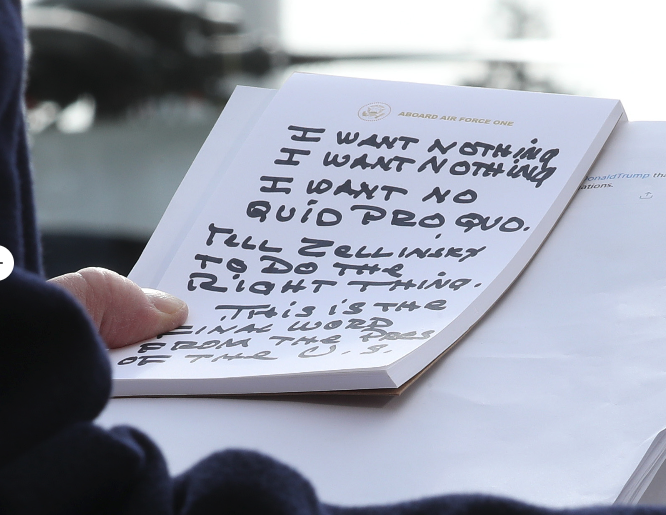 ABOARD AIR FORCE ONE
I WANT NOTHING
I WANT NOTHING
I WANT NO
QUID PRO QUO.
TELL ZELLINSKY
TO DO THE
RIGHT THING.
THIS IS THE
FINAL WORD
FROM THE PRES
OF THE U.S.
onaldTrump tha
ations.